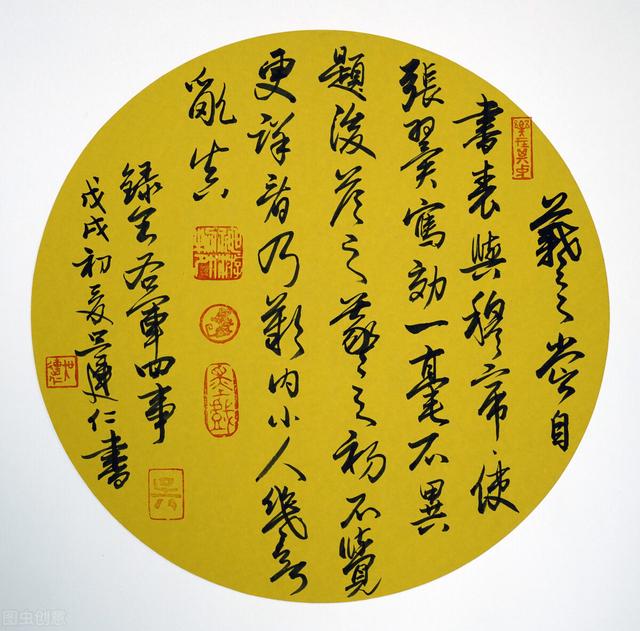 羲之嘗自
書表與穆帝〻使
張翼寫効一毫不異
題後答之羲之初不覺
更詳看乃歎曰小人幾欲
亂真
錄王右軍四事
戊戌初夏吳仁書
吳
图虫创意